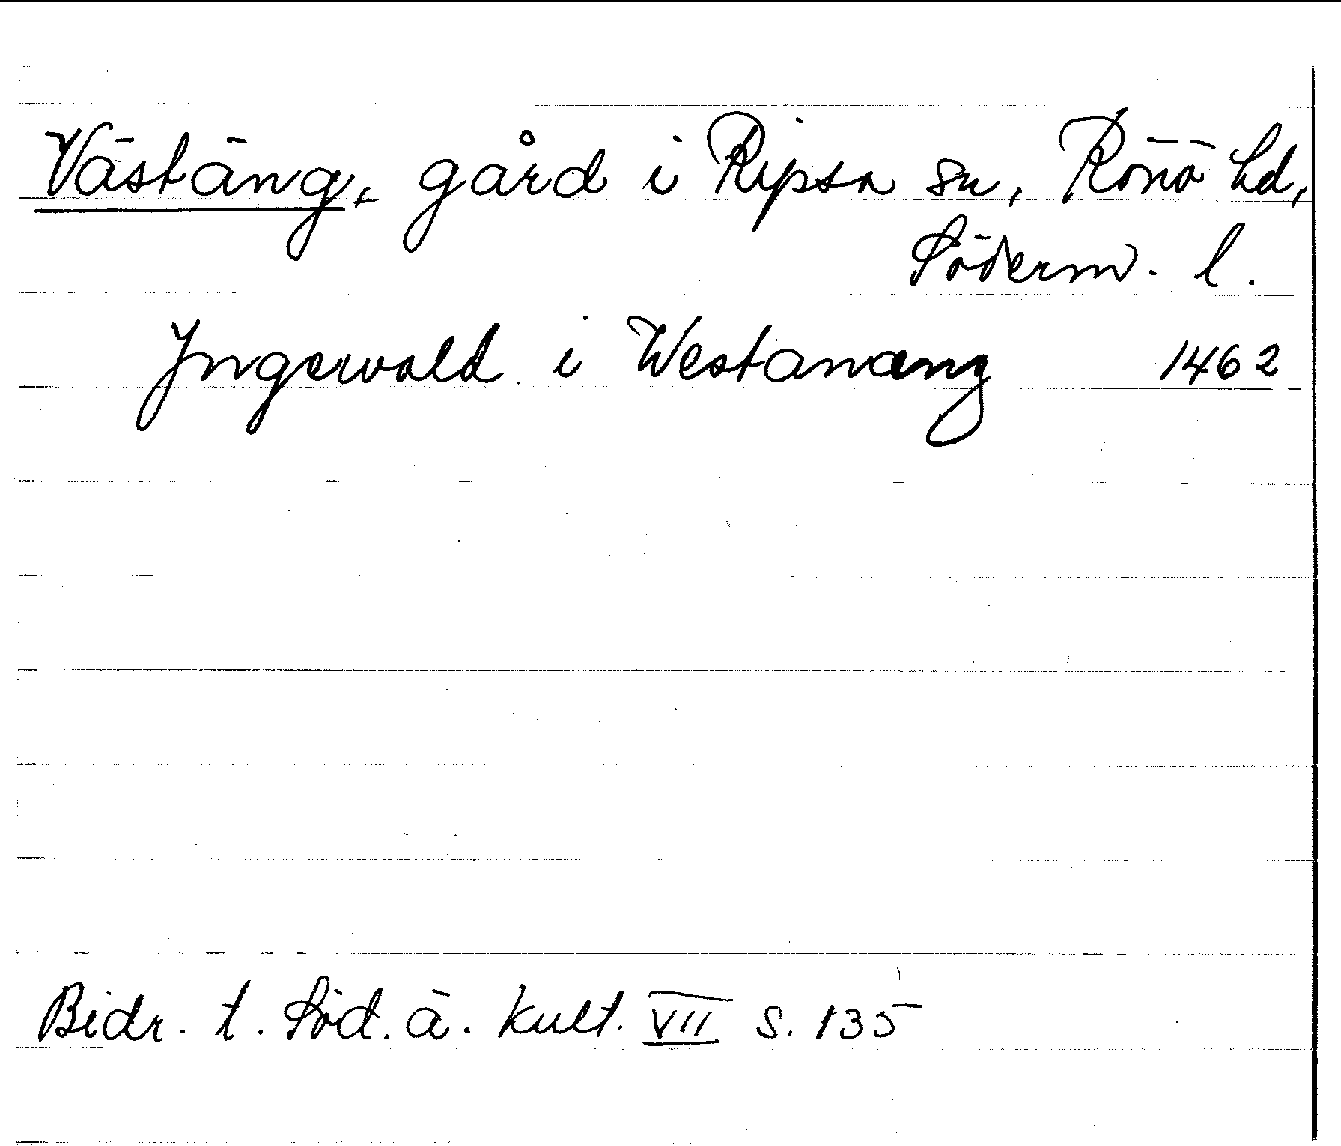 Västäng, gård i Ripsa sn, Rönö hd,
Söderm. l.
Yngewald i Westanang 1462
Bidr. t. Söd. ä. kult. VII s. 135